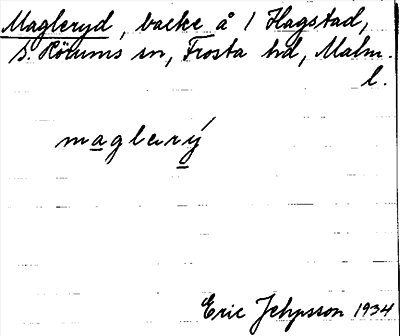 Magleryd, backe å 1 Hagstad,
S. Hörums sn, Frosta hd, Malm.
l.
maglarý
Eric Jehpsson 1934